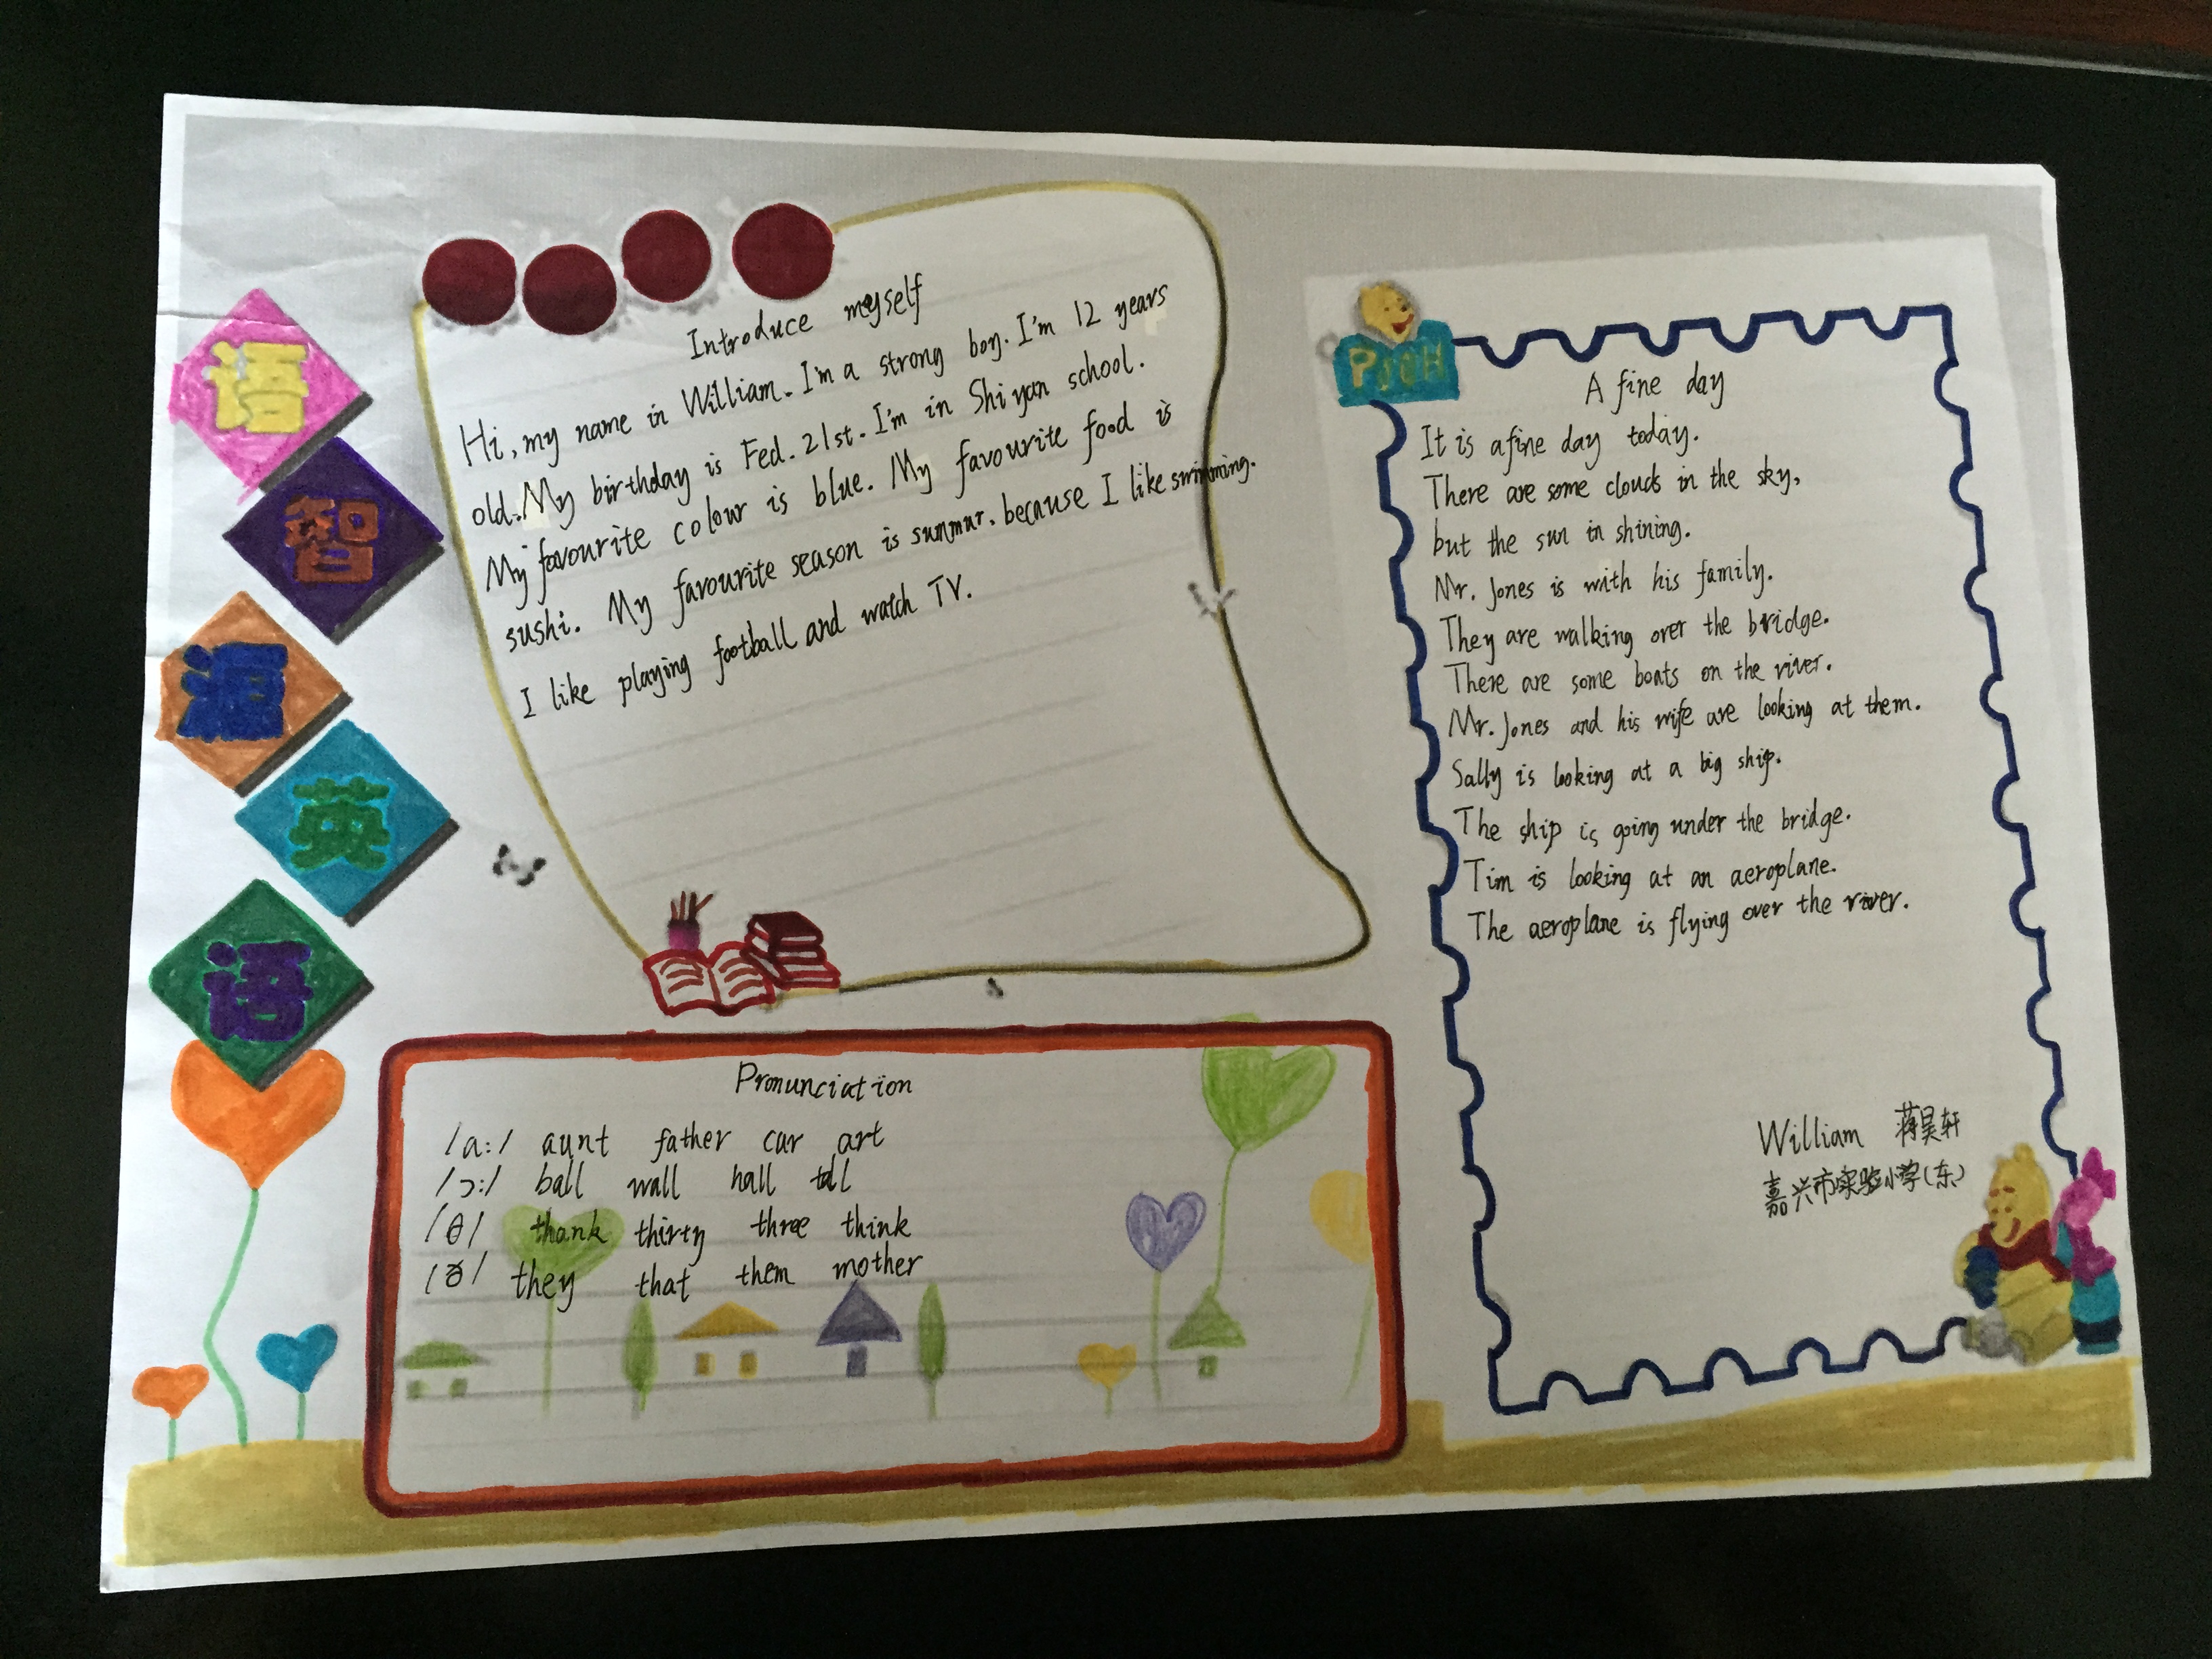 语
智
源
英
语
Introduce myself
Hi, my name in William. I'm a strong boy. I'm 12 years
old. My birthday is Fed. 21st. I'm in Shi yan school.
My favourite colour is blue. My favourite food is
sushi. My favourite season is summur. because I like swimming.
I like playing football and watch TV.
Pronunciation
/ɑ:/ aunt father car art
/ɔ:/ ball wall hall tall
/θ/ thank thirty three think
/ð/ they that them mother
POOH
A fine day
It is a fine day today.
There are some clouds in the sky,
but the sun in shining.
Mr. Jones is with his family.
They are walking over the bridge.
There are some boats on the river.
Mr. Jones and his wife are looking at them.
Sally is looking at a big ship.
The ship is going under the bridge.
Tim is looking at an aeroplane.
The aeroplane is flying over the river.
William 蒋昊轩
嘉兴市实验小学(东)